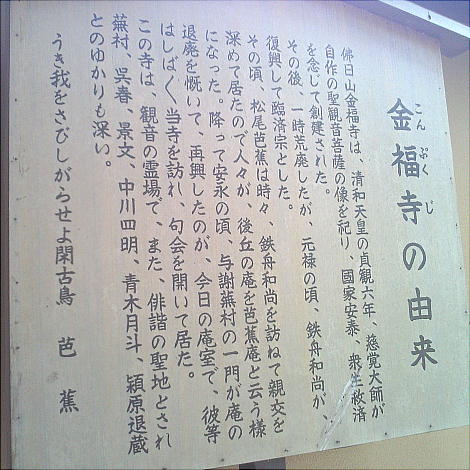 金福寺の由来
こんぷくじ
佛日山金福寺は、清和天皇の貞観六年、慈覚大師が
自作の聖観音菩薩の像を祀り、國家安泰、衆生救済
を念して創建された。
その後、一時荒廃したが、元禄の頃、鉄舟和尚が、
復興して臨済宗とした。
その頃、松尾芭蕉は時々、鉄舟和尚を訪ねて親交を
深めて居たので人々が、後丘の庵を芭蕉庵と云う様
になった。降って安永の頃、与謝蕪村の一門が庵の
退廃を慨いて、再興したのが、今日の庵室で、彼等
はしばしば、当寺を訪れ、句会を開いて居た。
この寺は、観音の霊場で、また、俳諧の聖地とされ
蕪村、呉春、景文、中川四明、青木月斗、潁原退蔵
とのゆかりも深い。
うき我をさびしがらせよ閑古鳥 芭蕉